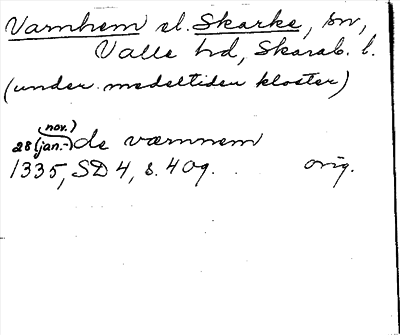 Varnhem el. Skarke, sn,
Valle hd, Skarab. l.
(under medeltiden kloster)
(nov.)
28 (jan.-) de værnnem
1335, SD 4, s. 409. orig.